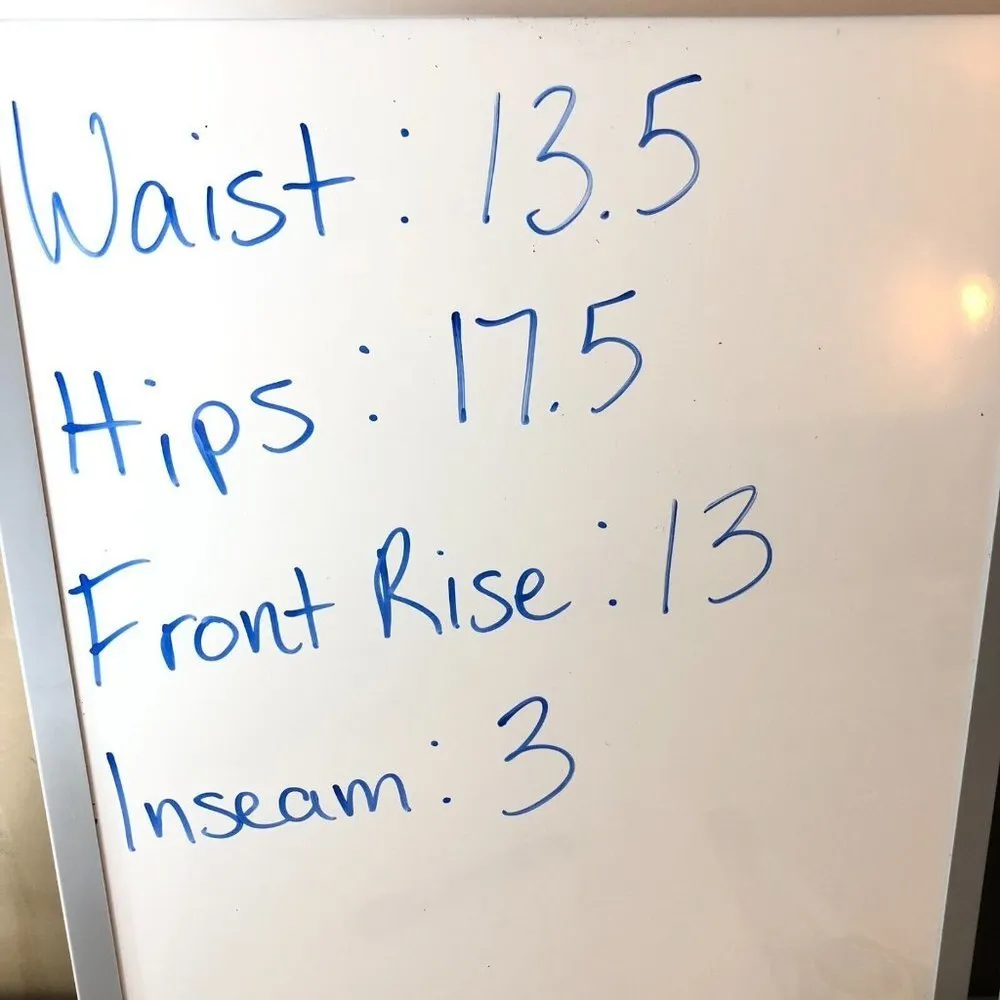 Waist: 13.5
Hips: 17.5
Front Rise: 13
Inseam: 3